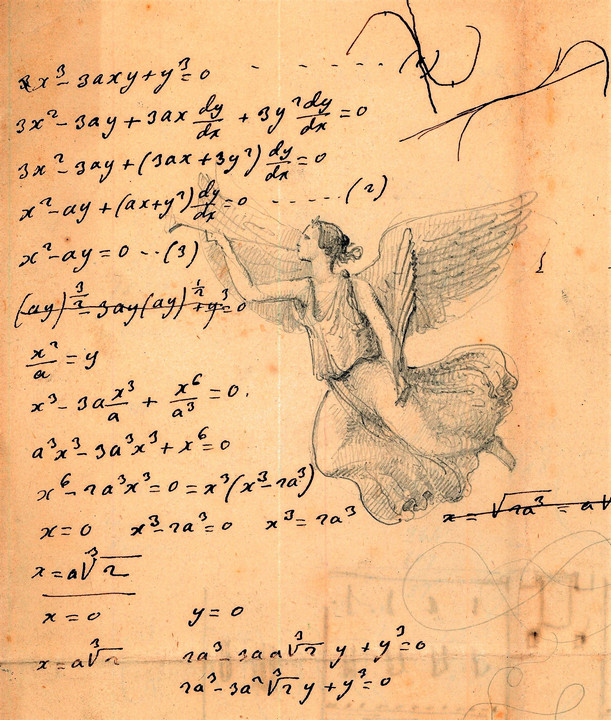 x³ - 3axy + y³ = 0 - - - - - - (1)
3x² - 3ay + 3ax dy/dx + 3y² dy/dx = 0
3x² - 3ay + (3ax + 3y²) dy/dx = 0
x² - ay + (ax + y²) dy/dx = 0 ------ (2)
x² - ay = 0 -- (3)
(ay)^3/2 - 3ay(ay)^1/2 + y³ = 0
x²/a = y
x³ - 3a x³/a + x⁶/a³ = 0.
a³x³ - 3a³x³ + x⁶ = 0
x⁶ - 2a³x³ = 0 = x³(x³ - 2a³)
x = 0 x³ - 2a³ = 0 x³ = 2a³
x = √2a³ = a√
x = a∛2
x = 0 y = 0
x = a∛2 2a³ - 3aa∛2 y + y³ = 0
2a³ - 3a²∛2 y + y³ = 0